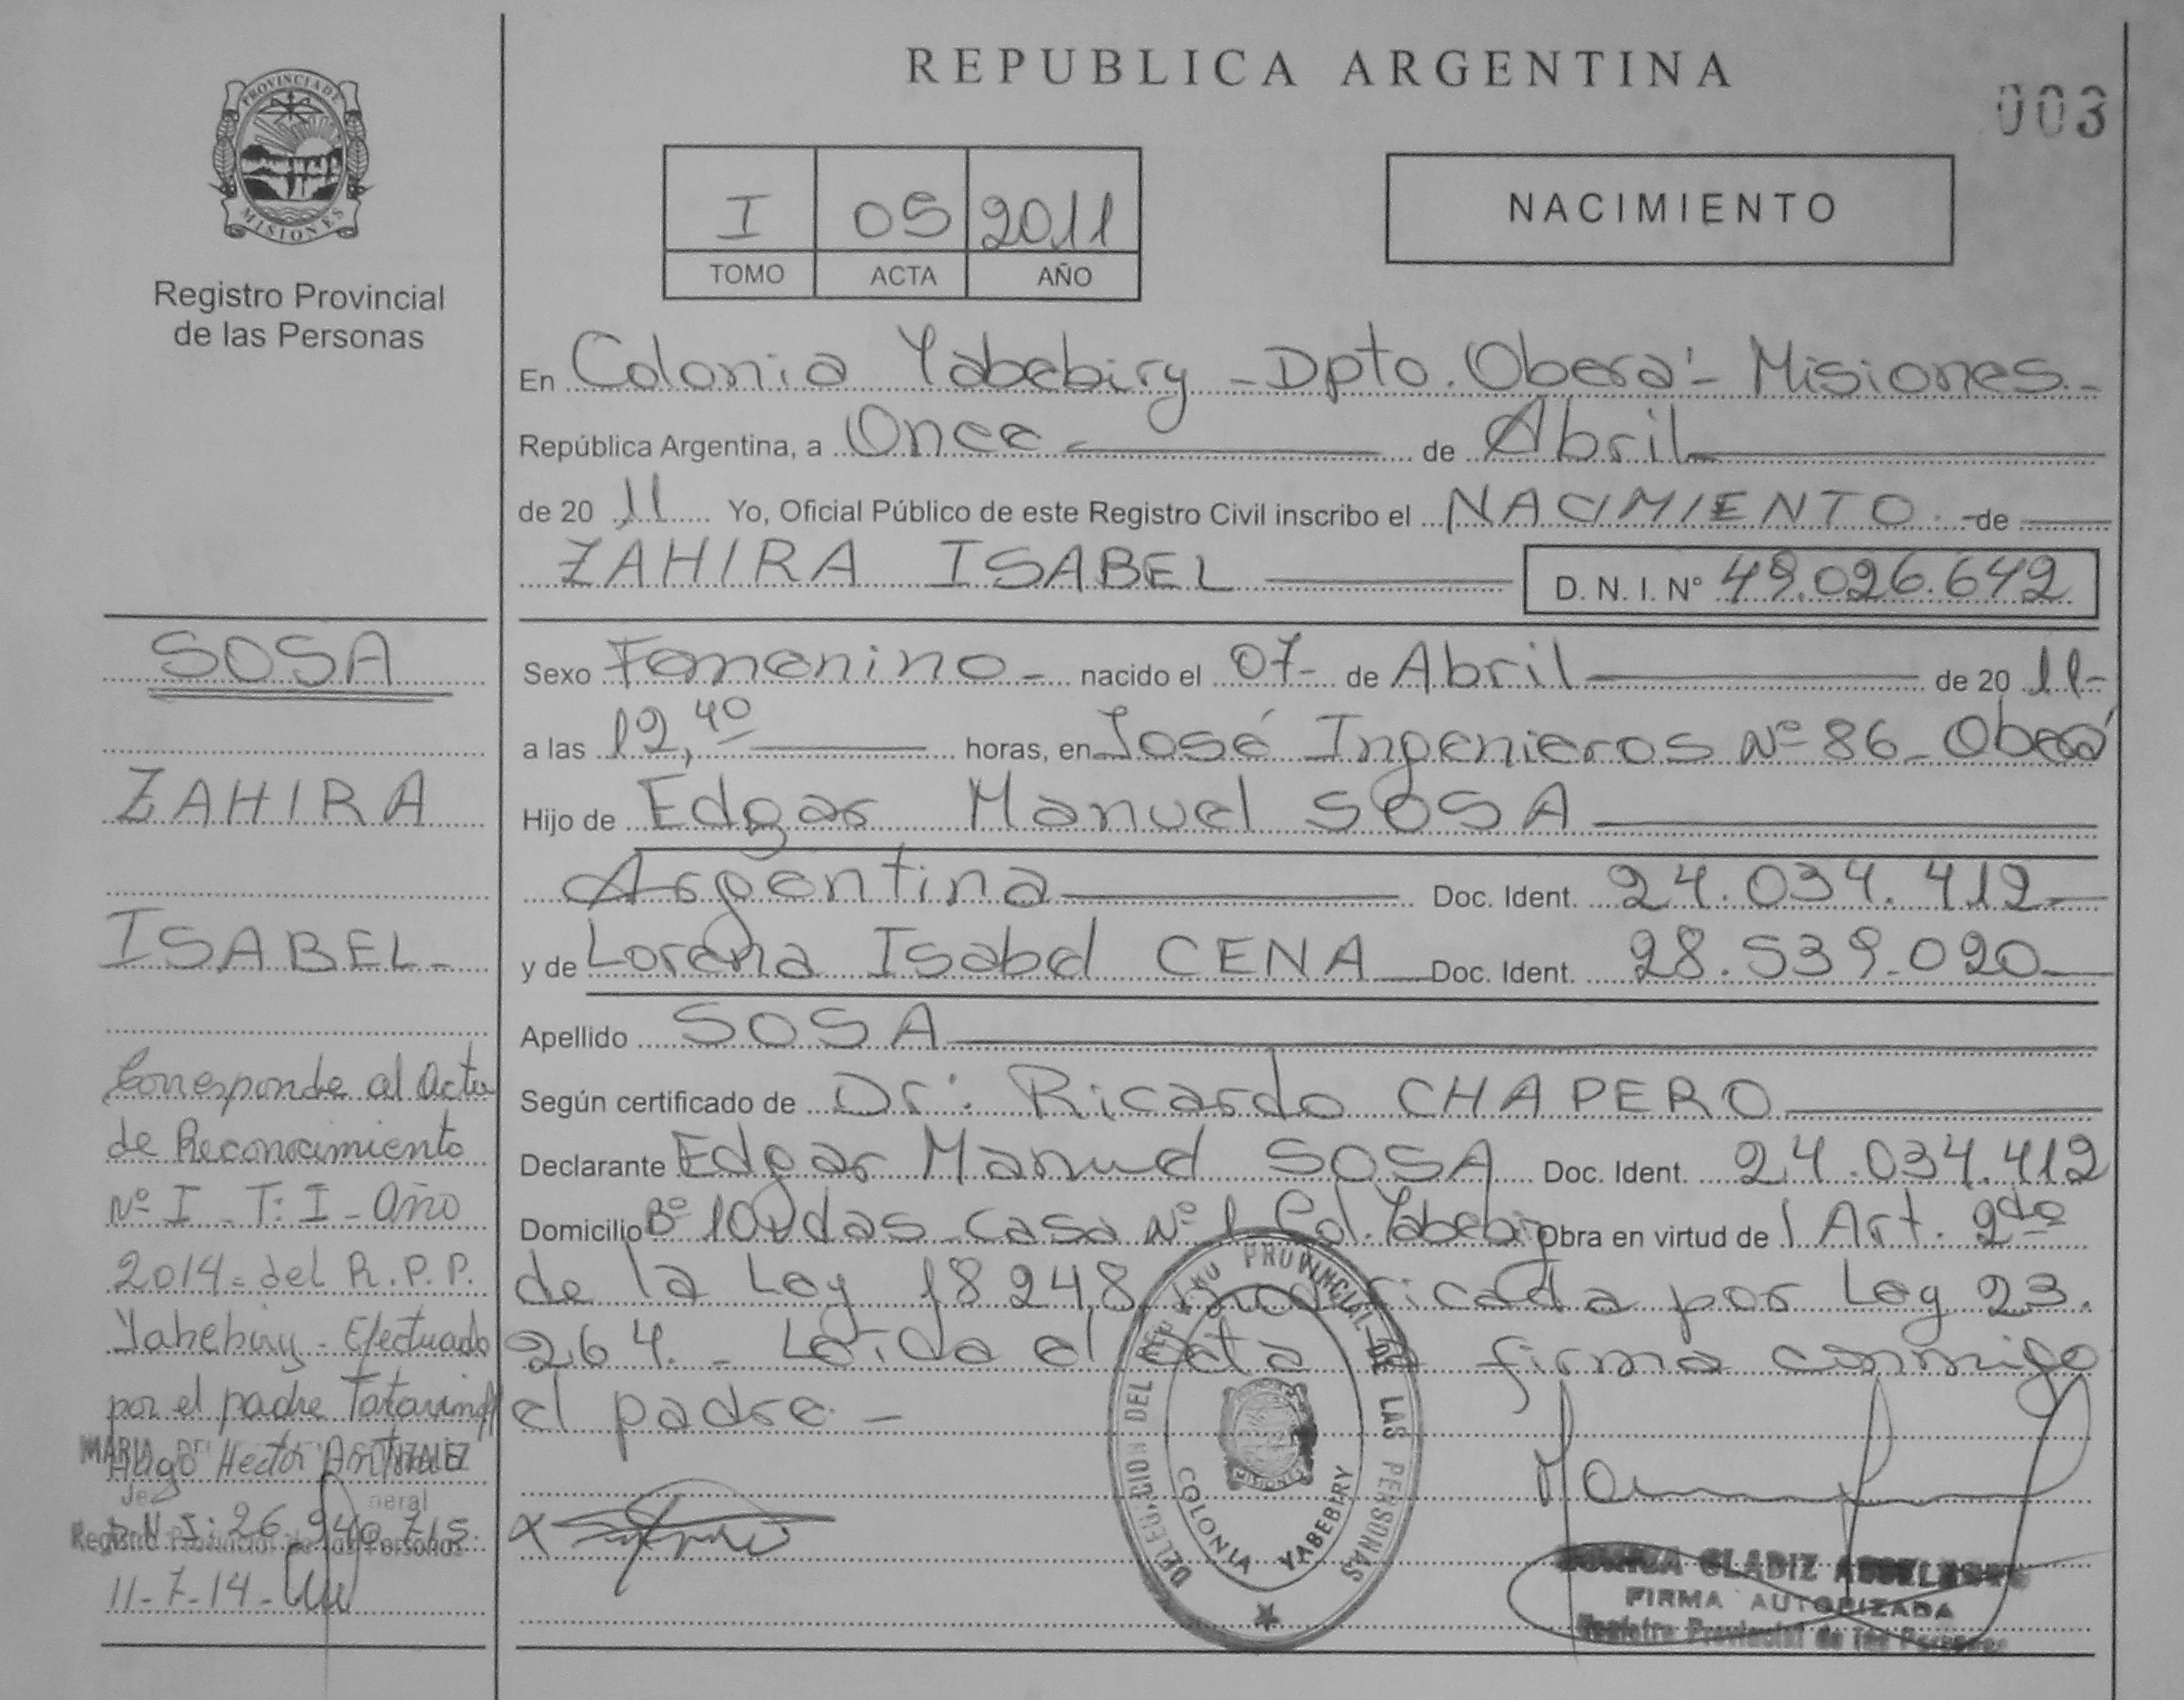 REPUBLICA ARGENTINA
003
PROVINCIA DE
MISIONES
Registro Provincial
de las Personas
I 05 2011
TOMO ACTA AÑO
NACIMIENTO
En Colonia Yabebiry - Dpto. Oberá - Misiones -
República Argentina, a Once de Abril
de 20 11 Yo, Oficial Público de este Registro Civil inscribo el NACIMIENTO - de
ZAHIRA ISABEL D. N. I. N° 49.026.642
Sexo Femenino - nacido el 07- de Abril de 20 11-
a las 12,40 horas, en José Ingenieros Nº 86 - Oberá
Hijo de Edgar Manuel SOSA
Argentina Doc. Ident. 24.034.412-
y de Lorena Isabel CENA Doc. Ident. 28.539.020
Apellido SOSA
Según certificado de Dr: Ricardo CHAPERO
Declarante Edgar Manuel SOSA Doc. Ident. 24.034.412
Domicilio Bº 10 Vdas - Casa Nº 1 Col. Yabebiry Obra en virtud del Art. 2do
de la Ley 18248 modificada por Ley 23.
264. - Leída el acta firma conmigo
el padre -
SOSA
ZAHIRA
ISABEL -
Corresponde al Acta
de Reconocimiento
Nº I - T: I - Año
2014 - del R.P.P.
Yabebiry - Efectuado
por el padre
Hugo Hector
D.N.I: 26.940.715.
11-7-14-
DELEGACION DEL REGISTRO PROVINCIAL DE LAS PERSONAS
COLONIA YABEBIRY
MISIONES
GLADIZ
FIRMA AUTORIZADA
Registro Provincial de las Personas